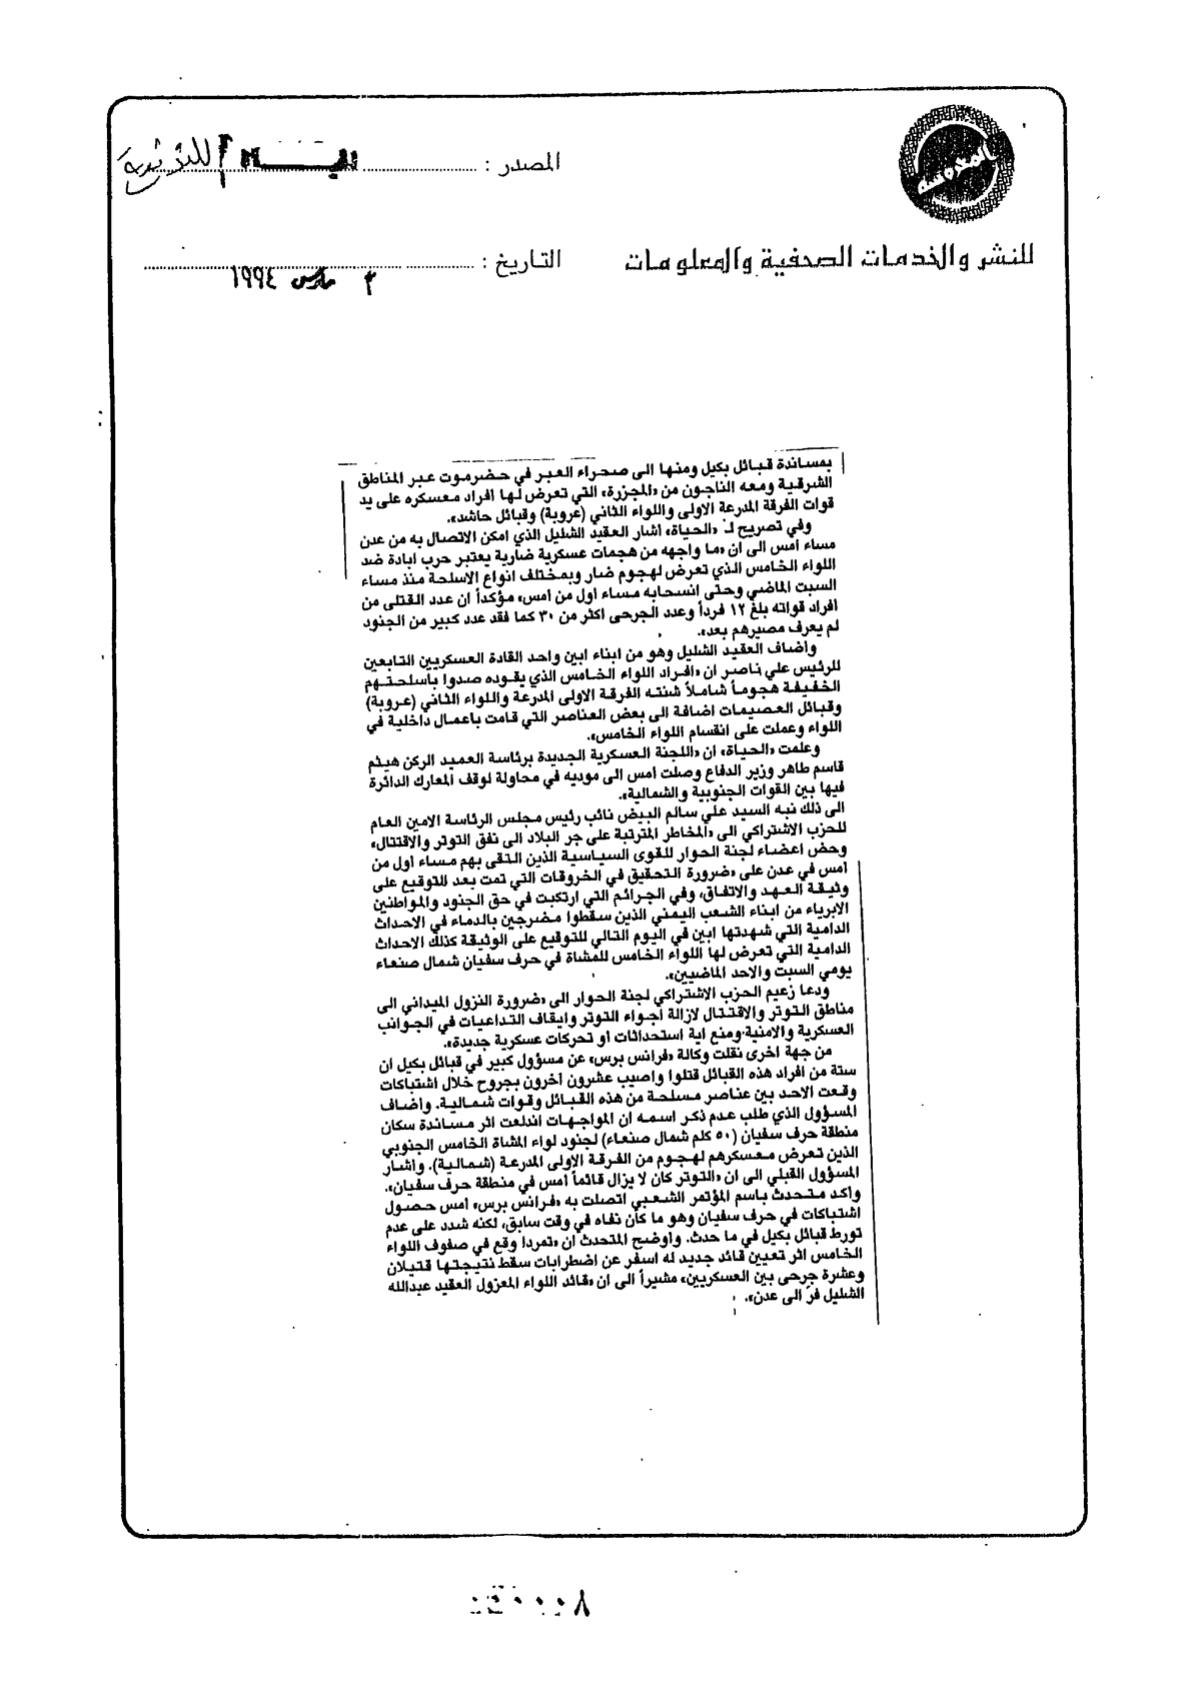 المصدر :
للنشر والخدمات الصحفية والمعلومات
التاريخ : ٣ مارس ١٩٩٤
بمساندة قبائل بكيل ومنها الى صحراء العبر في حضرموت عبر المناطق
الشرقية ومعه الناجون من «المجزرة» التي تعرض لها افراد معسكره على يد
قوات الفرقة المدرعة الاولى واللواء الثاني (عروبة) وقبائل حاشد».
وفي تصريح لـ «الحياة» اشار العقيد الشليل الذي امكن الاتصال به من عدن
مساء امس الى ان «ما واجهه من هجمات عسكرية ضارية يعتبر حرب ابادة ضد
اللواء الخامس الذي تعرض لهجوم ضار وبمختلف انواع الاسلحة منذ مساء
السبت الماضي وحتى انسحابه مساء اول من امس» مؤكداً ان عدد القتلى من
افراد قواته بلغ ١٢ فرداً وعدد الجرحى اكثر من ٣٠ كما فقد عدد كبير من الجنود
لم يعرف مصيرهم بعد».
واضاف العقيد الشليل وهو من ابناء ابين واحد القادة العسكريين التابعين
للرئيس علي ناصر ان «افراد اللواء الخامس الذي يقوده صدوا باسلحتهم
الخفيفة هجوماً شاملاً شنته الفرقة الاولى المدرعة واللواء الثاني (عروبة)
وقبائل العصيمات اضافة الى بعض العناصر التي قامت باعمال داخلية في
اللواء وعملت على انقسام اللواء الخامس».
وعلمت «الحياة» ان «اللجنة العسكرية الجديدة برئاسة العميد الركن هيثم
قاسم طاهر وزير الدفاع وصلت امس الى موديه في محاولة لوقف المعارك الدائرة
فيها بين القوات الجنوبية والشمالية».
الى ذلك نبه السيد علي سالم البيض نائب رئيس مجلس الرئاسة الامين العام
للحزب الاشتراكي الى «المخاطر المترتبة على جر البلاد الى نفق التوتر والاقتتال»
وحض اعضاء لجنة الحوار للقوى السياسية الذين التقى بهم مساء اول من
امس في عدن على «ضرورة التحقيق في الخروقات التي تمت بعد التوقيع على
وثيقة العهد والاتفاق، وفي الجرائم التي ارتكبت في حق الجنود والمواطنين
الابرياء من ابناء الشعب اليمني الذين سقطوا مضرجين بالدماء في الاحداث
الدامية التي شهدتها ابين في اليوم التالي للتوقيع على الوثيقة كذلك الاحداث
الدامية التي تعرض لها اللواء الخامس للمشاة في حرف سفيان شمال صنعاء
يومي السبت والاحد الماضيين».
ودعا زعيم الحزب الاشتراكي لجنة الحوار الى «ضرورة النزول الميداني الى
مناطق التوتر والاقتتال لازالة اجواء التوتر وايقاف التداعيات في الجوانب
العسكرية والامنية ومنع اية استحداثات او تحركات عسكرية جديدة».
من جهة اخرى نقلت وكالة «فرانس برس» عن مسؤول كبير في قبائل بكيل ان
ستة من افراد هذه القبائل قتلوا واصيب عشرون آخرون بجروح خلال اشتباكات
وقعت الاحد بين عناصر مسلحة من هذه القبائل وقوات شمالية. واضاف
المسؤول الذي طلب عدم ذكر اسمه ان المواجهات اندلعت اثر مساندة سكان
منطقة حرف سفيان (٥٠ كلم شمال صنعاء) لجنود لواء المشاة الخامس الجنوبي
الذين تعرض معسكرهم لهجوم من الفرقة الاولى المدرعة (شمالية). واشار
المسؤول القبلي الى ان «التوتر كان لا يزال قائماً امس في منطقة حرف سفيان».
واكد متحدث باسم المؤتمر الشعبي اتصلت به «فرانس برس» امس حصول
اشتباكات في حرف سفيان وهو ما كان نفاه في وقت سابق، لكنه شدد على عدم
تورط قبائل بكيل في ما حدث. واوضح المتحدث ان «تمردا وقع في صفوف اللواء
الخامس اثر تعيين قائد جديد له اسفر عن اضطرابات سقط نتيجتها قتيلان
وعشرة جرحى بين العسكريين» مشيراً الى ان «قائد اللواء المعزول العقيد عبدالله
الشليل فرّ الى عدن».